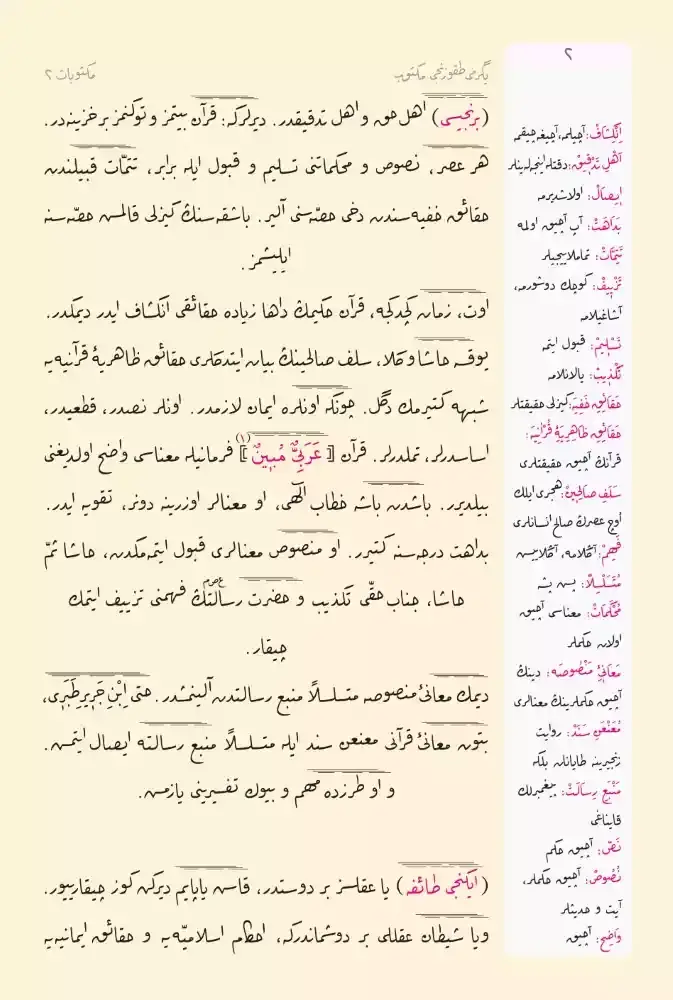 مكتوبات ٢
يگرمی طقوزنجی مكتوب
(برنجیسی) اهل حق و اهل تدقیقدر. دیرلركه: قرآن بیتمز و توكنمز بر خزینه‌در.
هر عصر، نصوص و محكماتنی تسلیم و قبول ایله برابر، تتمّات قبیلندن
حقائق خفیه‌سندن دخی حصّه‌سنی آلیر. باشقه‌سنڭ گیزلی قالمس حصّه‌سنه
ایلیشمز.
اوت، زمان گچدكجه، قرآن حكیمڭ داها زیاده حقائقی انكشاف ایدر دیمكدر.
یوقسه حاشا و كلا، سلف صالحینڭ بیان ایتدكلری حقائق ظاهریۀ قرآنیه‌یه
شبهه كتیرمك دگل. چونكه اونلره ایمان لازمدر. اونلر نصدر، قطعیدر،
اساسدرلر، تملدرلر. قرآن [عَرَبِىٌّ مُبِينٌ](١) فرمانیله معناسی واضح اولدیغنی
بیلدیرر. باشدن باشه خطاب الٓهی، او معنالر اوزرینه دونر، تقویه ایدر.
بداهت درجه‌سنه كتیرر. او منصوص معنالری قبول ایتمه‌مكدن، حاشا ثمّ
حاشا، جناب حقّی تكذیب و حضرت رسالتڭ (عصم) فهمنی تزییف ایتمك
چیقار.
دیمك معانیٔ منصوصه متسلسلًا منبع رسالتدن آلینمشدر. حتی اِبْنِ جَرِیرِ طَبَرِی،
بتون معانیٔ قرآنی معنعن سند ایله متسلسلًا منبع رسالته ایصال ایتمس.
و او طرزده مهم و بیوك تفسیرینی یازمس.
(ایكنجی طائفه) یا عقلسز بر دوستدر، قاس یاپایم دیركن گوز چیقاریيور.
ویا شیطان عقللی بر دوشماندركه، احكام اسلامیّه‌یه و حقائق ایمانیه‌یه
٢
اِنْكِشَافْ: آچیلمه، آچیغه چیقمه
اَهْلِ تَدْقِیقْ: دقتله اینجله‌ینلر
اِیصَالْ: اولاشدیرمه
بَدَاهَتْ: آپ آچیق اولمه
تَتِمَّاتْ: تماملاییجیلر
تَزْیِیفْ: كوچك دوشورمه،
آشاغیلامه
تَسْلِیمْ: قبول ایتمه
تَكْذِیبْ: یالانلامه
حَقَائِقِ خَفِیَه: گیزلی حقیقتلر
حَقَائِقِ ظَاهِرِیَۀِ قُرْاٰنِیَه:
قرآنڭ آچیق حقیقتلری
سَلَفِ صَالِحِینْ: هجری ایلك
اوچ عصرڭ صالح انسانلری
فَهِمْ: آڭلامه، آڭلایيس
مُتَسَلْسِلًا: پس پشه
مُحْكَمَاتْ: معناسی آچیق
اولان حكملر
مَعَانِیٔ مَنْصُوصَه: دینڭ
آچیق حكملرینڭ معنالری
مُعَنْعَنْ سَنَدْ: روایت
زنجیرینه طایانان بلگه
مَنْبَعِ رِسَالَتْ: پیغمبرلك
قایناغی
نَصّ: آچیق حكم
نُصُوصْ: آچیق حكملر،
آیت و حدیثلر
وَاضِحْ: آچیق